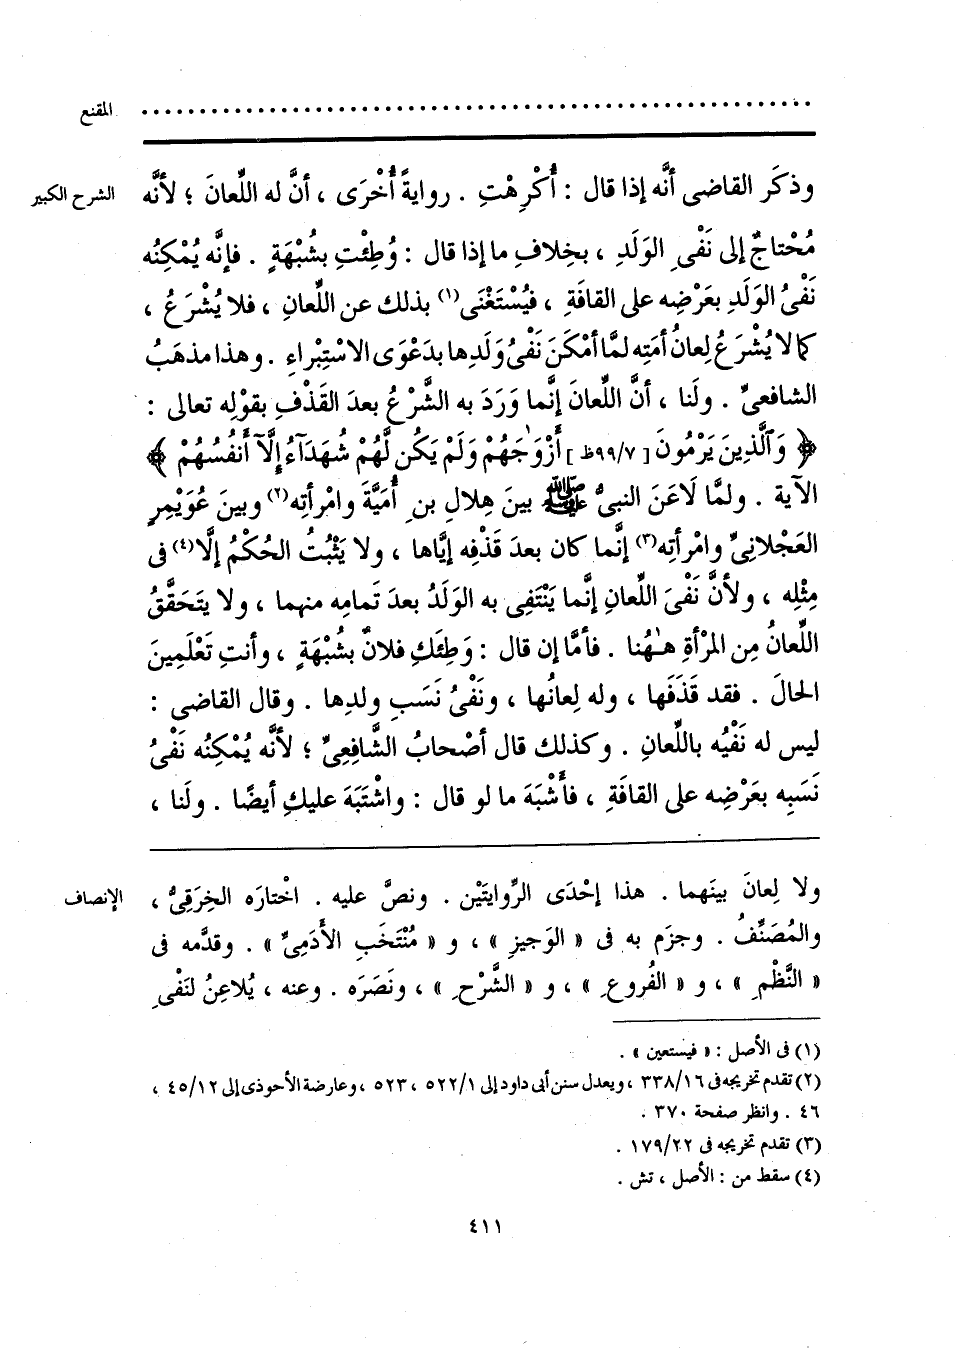 المقنع
وذكَر القاضى أنَّه إذا قال : أُكْرِهْتِ . روايةً أُخْرَى ، أنَّ له اللِّعانَ ؛ لأنَّه
الشرح الكبير
مُحْتاجٌ إلى نَفْىِ الوَلَدِ ، بخِلافِ ما إذا قال : وُطِئْتِ بشُبْهَةٍ . فإنَّه يُمْكِنُه
نَفْىُ الوَلَدِ بعَرْضِه على القافَةِ ، فيُسْتَغْنَى(١) بذلك عن اللِّعانِ ، فلا يُشْرَعُ ،
كما لا يُشْرَعُ لِعانُ أمَتِه لمَّا أمْكَنَ نَفْىُ وَلَدِها بدَعْوَى الاسْتِبْراءِ . وهذا مذهَبُ
الشافعىِّ . ولَنا ، أنَّ اللِّعانَ إنَّما وَرَدَ به الشَّرْعُ بعدَ القَذْفِ بقوْلِه تعالى :
﴿ وَٱلَّذِينَ يَرْمُونَ [ ٩٩/٧ظ ] أَزْوَٰجَهُمْ وَلَمْ يَكُن لَّهُمْ شُهَدَآءُ إِلَّآ أَنفُسُهُمْ ﴾
الآية . ولمَّا لَاعَنَ النبىُّ ﷺ بينَ هِلالِ بنِ أُمَيَّةَ وامْرأتِه(٢) وبينَ عُوَيْمِرٍ
العَجْلانِىِّ وامْرأتِه(٣) إنَّما كان بعدَ قَذْفِه إيَّاها ، ولا يَثْبُتُ الحُكْمُ إلَّا(٤) فى
مِثْلِه ، ولأنَّ نَفْىَ اللِّعانِ إنَّما يَنْتَفِى به الوَلَدُ بعدَ تَمامِه منهما ، ولا يتَحَقَّقُ
اللِّعانُ مِن المرْأةِ هٰهُنا . فأمَّا إن قال : وَطِئَكِ فلانٌ بشُبْهَةٍ ، وأنتِ تَعْلَمِينَ
الحالَ . فقد قَذَفَها ، وله لِعانُها ، ونَفْىُ نَسَبِ ولدِها . وقال القاضى :
ليس له نَفْيُه باللِّعانِ . وكذلك قال أصْحابُ الشَّافِعِىِّ ؛ لأنَّه يُمْكِنُه نَفْىُ
نَسَبِه بعَرْضِه على القافَةِ ، فأَشْبَهَ ما لو قال : واشْتَبَهَ عليكِ أيضًا . ولَنا ،
ولا لِعانَ بينَهما . هذا إحْدَى الرِّوايتَيْن . ونصَّ عليه . اخْتارَه الخِرَقِىُّ ،
الإنصاف
والمُصَنِّفُ . وجزَم به فى « الوَجيزِ » ، و « مُنْتَخَبِ الأَدَمِىِّ » . وقدَّمه فى
« النَّظْمِ » ، و « الفُروعِ » ، و « الشَّرْحِ » ، ونَصَرَه . وعنه ، يُلاعِنُ لنَفْىِ
(١) فى الأصل : « فيستعين » .
(٢) تقدم تخريجه فى ٣٣٨/١٦ ، ويعدل سنن أبى داود إلى ٥٢٢/١ ، ٥٢٣ ، وعارضة الأحوذى إلى ٤٥/١٢ ،
٤٦ . وانظر صفحة ٣٧٠ .
(٣) تقدم تخريجه فى ١٧٩/٢٢ .
(٤) سقط من : الأصل ، تش .
٤١١